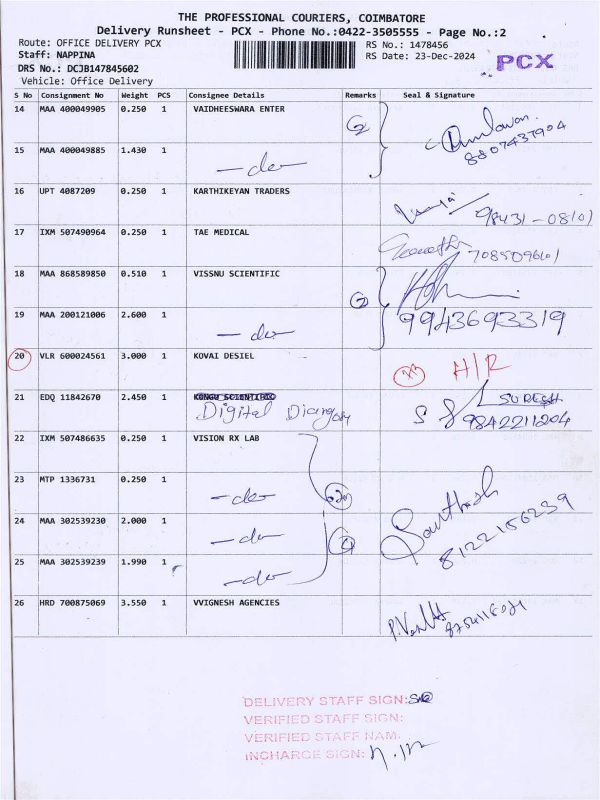 THE PROFESSIONAL COURIERS, COIMBATORE
Delivery Runsheet - PCX - Phone No.:0422-3505555 - Page No.:2
Route: OFFICE DELIVERY PCX
RS No.: 1478456
Staff: NAPPINA
RS Date: 23-Dec-2024
PCX
DRS No.: DCJB147845602
Vehicle: Office Delivery
S No Consignment No Weight PCS Consignee Details Remarks Seal & Signature
14 MAA 400049905 0.250 1 VAIDHEESWARA ENTER 2
8807437904
15 MAA 400049885 1.430 1 -do-
16 UPT 4087209 0.250 1 KARTHIKEYAN TRADERS
17 IXM 507490964 0.250 1 TAE MEDICAL
18 MAA 868589850 0.510 1 VISSNU SCIENTIFIC 2
19 MAA 200121006 2.600 1 -do- 9943693319
20 VLR 600024561 3.000 1 KOVAI DESIEL H/R
21 EDQ 11842670 2.450 1 KONGU SCIENTIFIC SURESH
Digital 9842211204
22 IXM 507486635 0.250 1 VISION RX LAB
23 MTP 1336731 0.250 1 -do- Santhosh
24 MAA 302539230 2.000 1 -do- 4 8122156239
25 MAA 302539239 1.990 1 -do-
26 HRD 700875069 3.550 1 VVIGNESH AGENCIES
DELIVERY STAFF SIGN:
VERIFIED STAFF SIGN:
VERIFIED STAFF NAM:
INCHARGE SIGN: